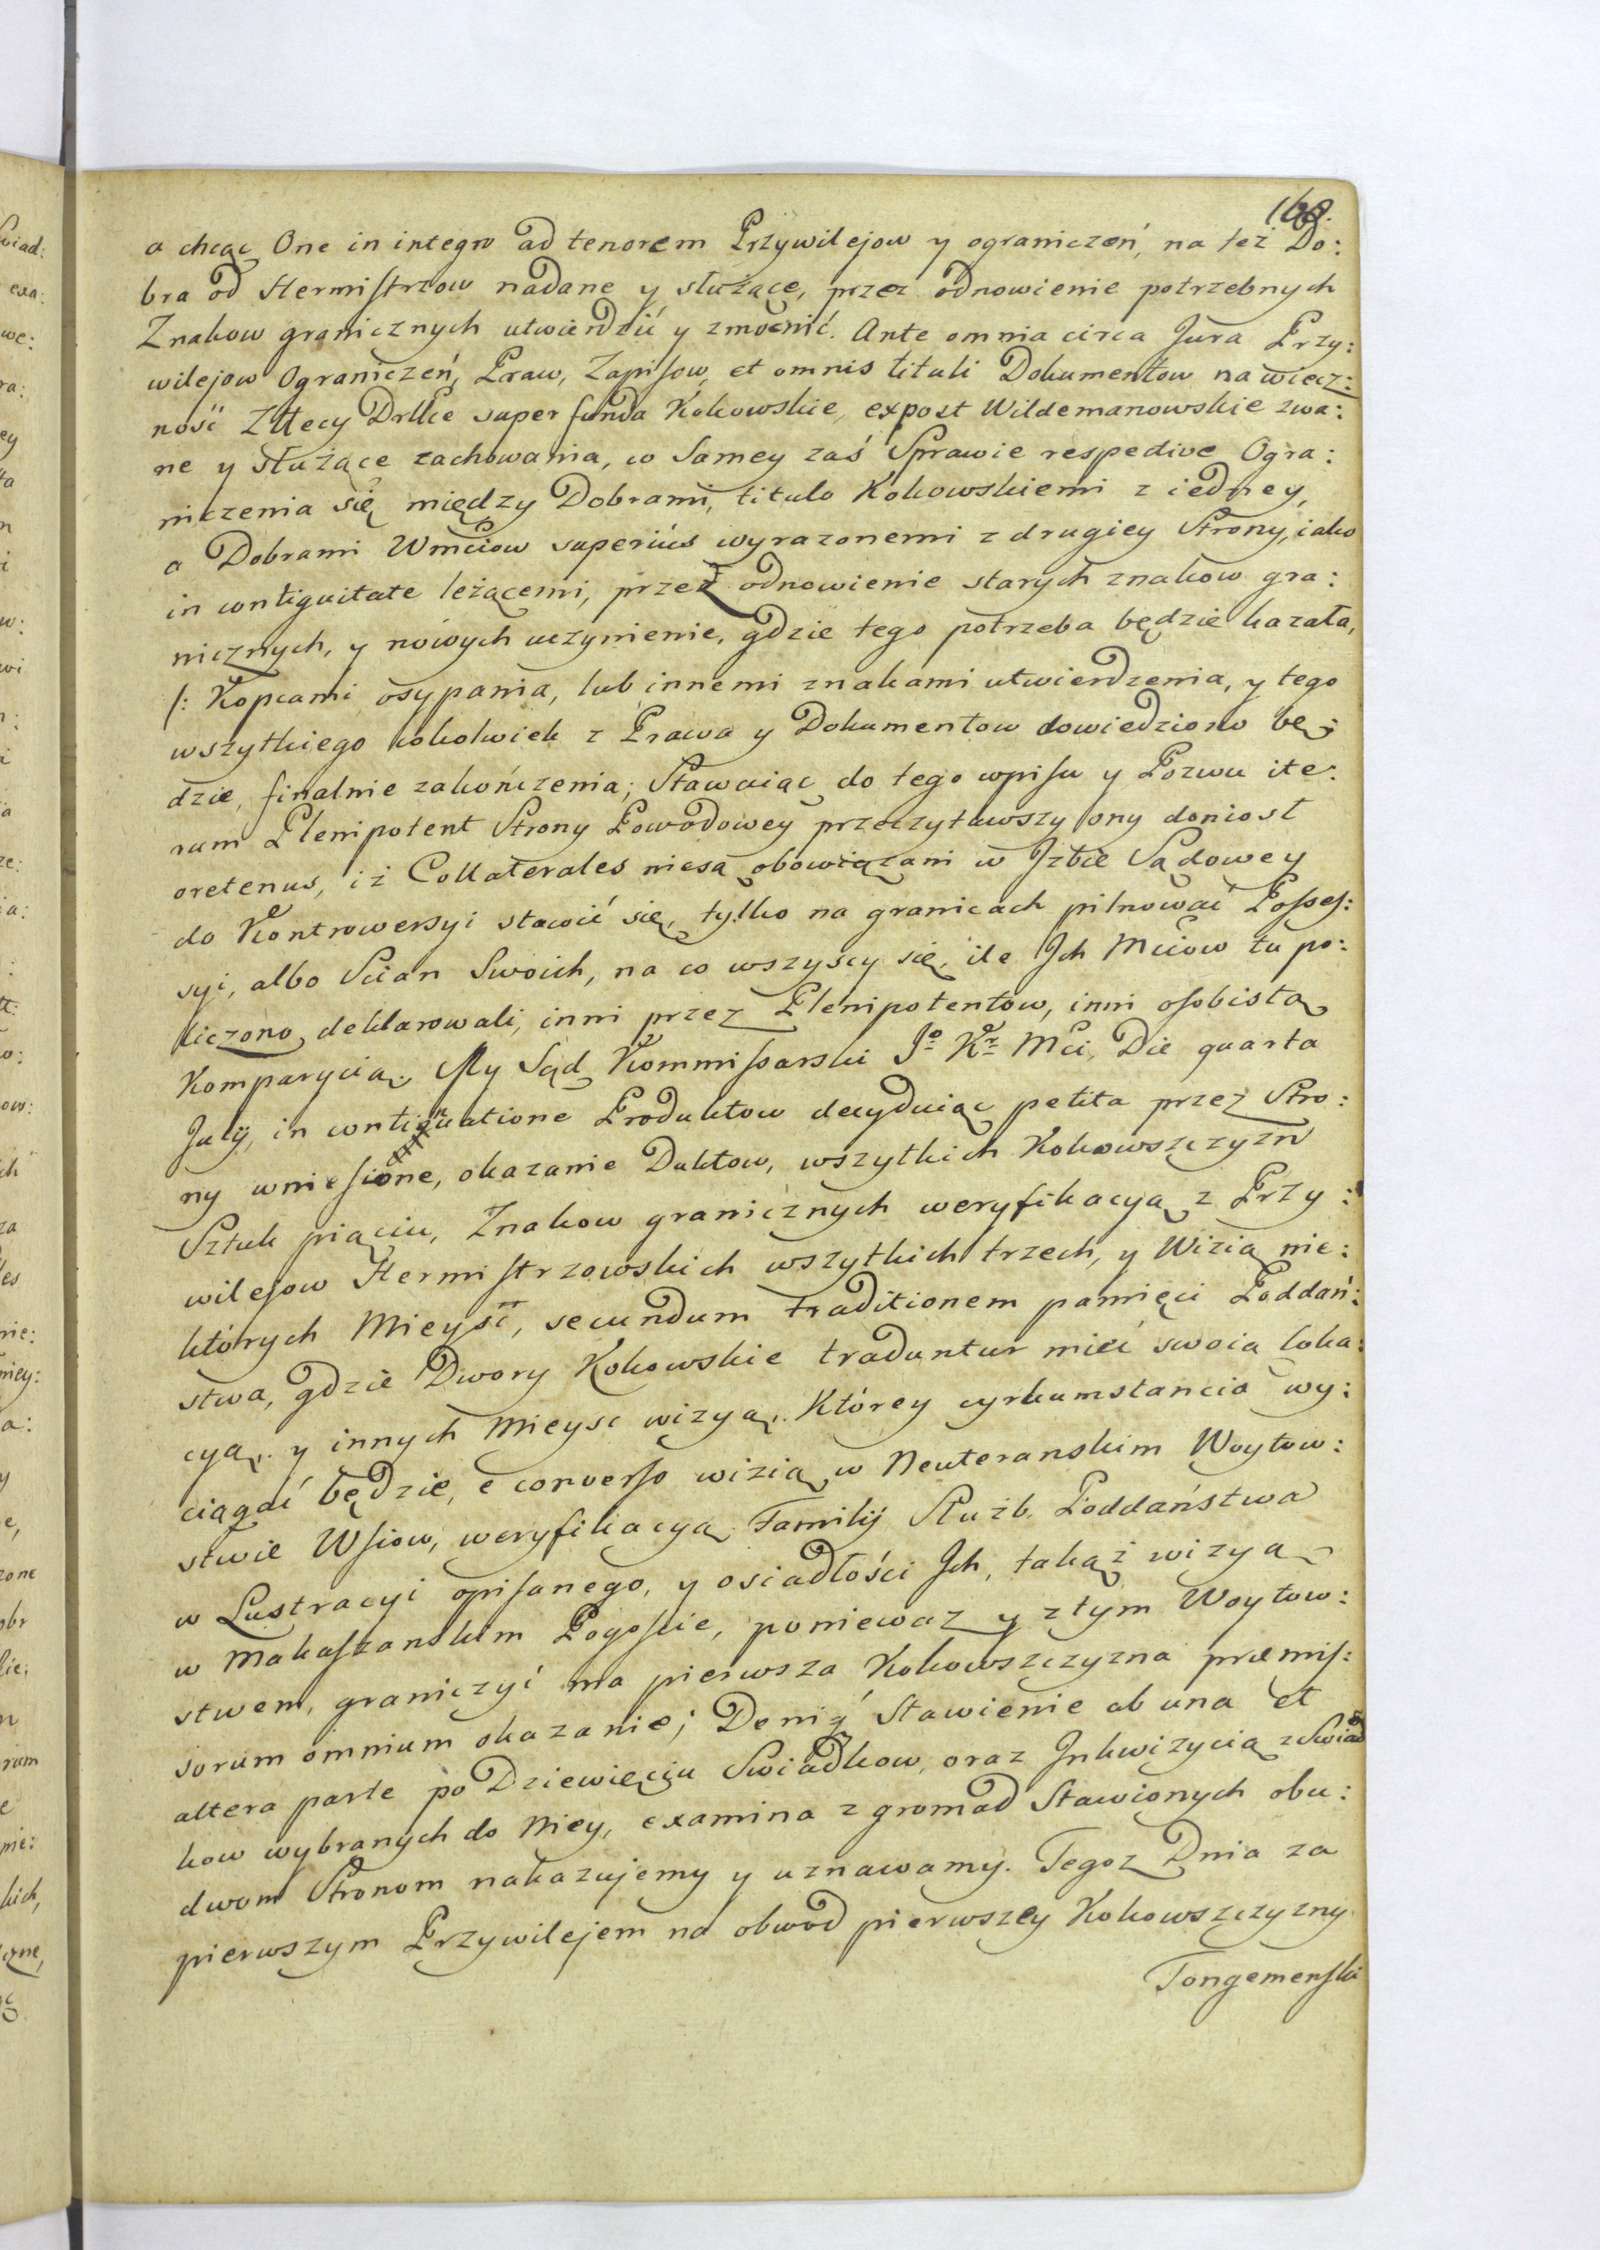 168.
a chcąc One in integro ad tenorem Przywilejow y ograniczeń, na też Do:
bra od Hermistrzow nadane y służące, przez odnowienie potrzebnych
Znakow granicznych utwierdzić y zmocnić. Ante omnia circa Jura Przy:
wilejow Ograniczeń, Praw, Zapisow, et omnis tituli Dokumentow na wiecz:
ność super funda Kokowskie, expost Wildemanowskie zwa:
ne y służące zachowania, w Samey zaś Sprawie respective Ogra:
niczenia się między Dobrami, titulo Kokowskiemi z iedney,
a Dobrami Wmciow superiús wyrazonemi z drugiey Strony, iako
in contiguitate leżącemi, przez odnowienie starych znakow gra:
nicznych, y nowych uczynienie, gdzie tego potrzeba będzie kazała,
/: Kopcami osypania, lub innemi znakami utwierdzenia, y tego
wszytkiego cokolwiek z Prawa y Dokumentow dowiedziono bę:
dzie, finalnie zakończenia; Stawaiąc do tego wpisu y Pozwu ite:
rum Plenipotent Strony Powodowey przeczytawszy ony doniosł
oretenus, iż Collaterales niesą obowiązani w Jzbie Sądowey
do Kontrowersyi stawić się, tylko na granicach pilnować Posses:
syi, albo Scian Swoich, na co wszyscy się, ile Jch Mciow tu po:
liczono, deklarowali, inni przez Plenipotentow, inni osobistą
Komparycią. My Sąd Kommissarski Jo Kr Mci, Die quarta
July, in continuatione Produktow decyduiąc petita przez Stro:
ny wniesione, okazanie Duktow, wszytkich Kokowszczyzn
Sztuk piąciu, Znakow granicznych weryfikacyą z Przy:
wilejow Hermistrzowskich wszytkich trzech, y Wizią nie:
których Mieysc, secundum traditionem pamięci Poddań:
stwa, gdzie Dwory Kokowskie traduntur mieć swoią loka:
cyą, y innych Mieysc wizyą, Którey cyrkumstancia wy:
ciągać będzie, e converso wizią w Neuteranskim Woytow:
stwie Wsiow, weryfikacyą Familij Służb Poddaństwa
w Lustracyi opisanego, y osiadłości Jch, takąż wizyą
w Makaszanskim Pogoscie, poniewaz y z tym Woytow:
stwem, graniczyć ma pierwsza Kokowszczyzna præmis:
sorum omnium okazanie; Deniq Stawienie ab una et
altera parte po Dziewięciu Swiadkow, oraz Jnkwizycią z Swiad
kow wybranych do Niey, examina z gromad Stawionych obu:
dwom Stronom nakazujemy y uznawamy. Tegoz Dnia za
pierwszym Przywilejem na obwod pierwszey Kokowszczyzny
Tongemenski